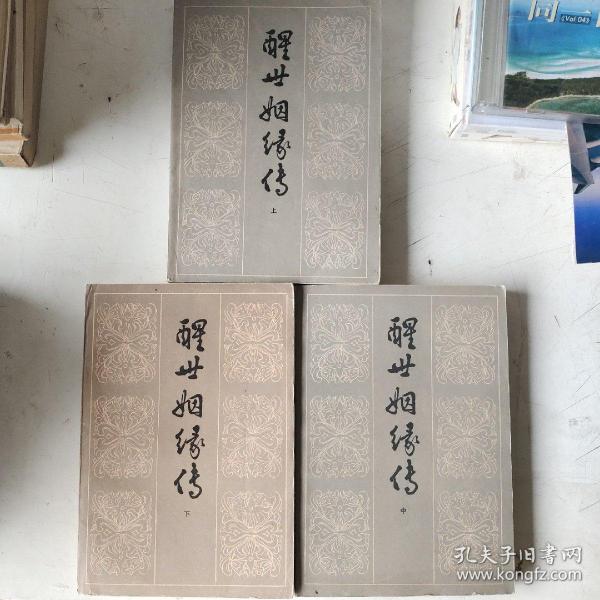 醒世姻缘传
上
同一
(Vol 04)
醒世姻缘传
下
醒世姻缘传
中
孔夫子旧书网
www.kongfz.com